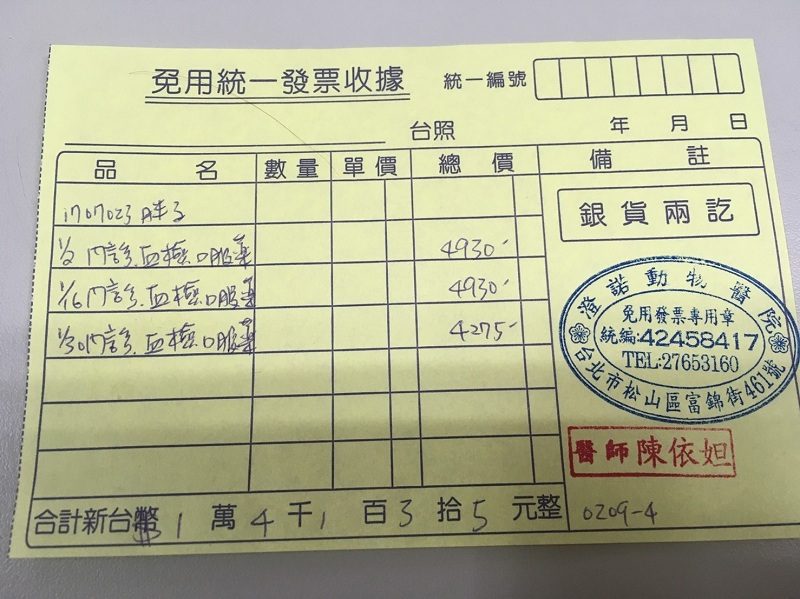 免用統一發票收據
統一編號
台照 年 月 日
品名 數量 單價 總價 備註
1707023 胖子
1/2 門診.血檢.口服藥 4930
1/16 門診.血檢.口服藥 4930
1/30 門診.血檢.口服藥 4275
銀貨兩訖
澄諾動物醫院
免用發票專用章
統編:42458417
TEL:27653160
台北市松山區富錦街461號
醫師陳依妲
合計新台幣 1 萬 4 千 1 百 3 拾 5 元整
0209-4